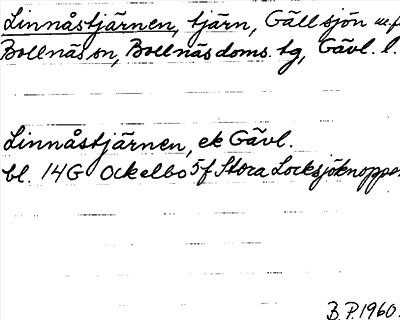 Linnåstjärnen, tjärn, Gällsjön m.fl.
Bollnäs sn, Bollnäs doms. tg, Gävl. l.
Linnåstjärnen, ek Gävl.
bl. 14G Ockelbo 5f Stora Locksjöknoppen
B.P. 1960.